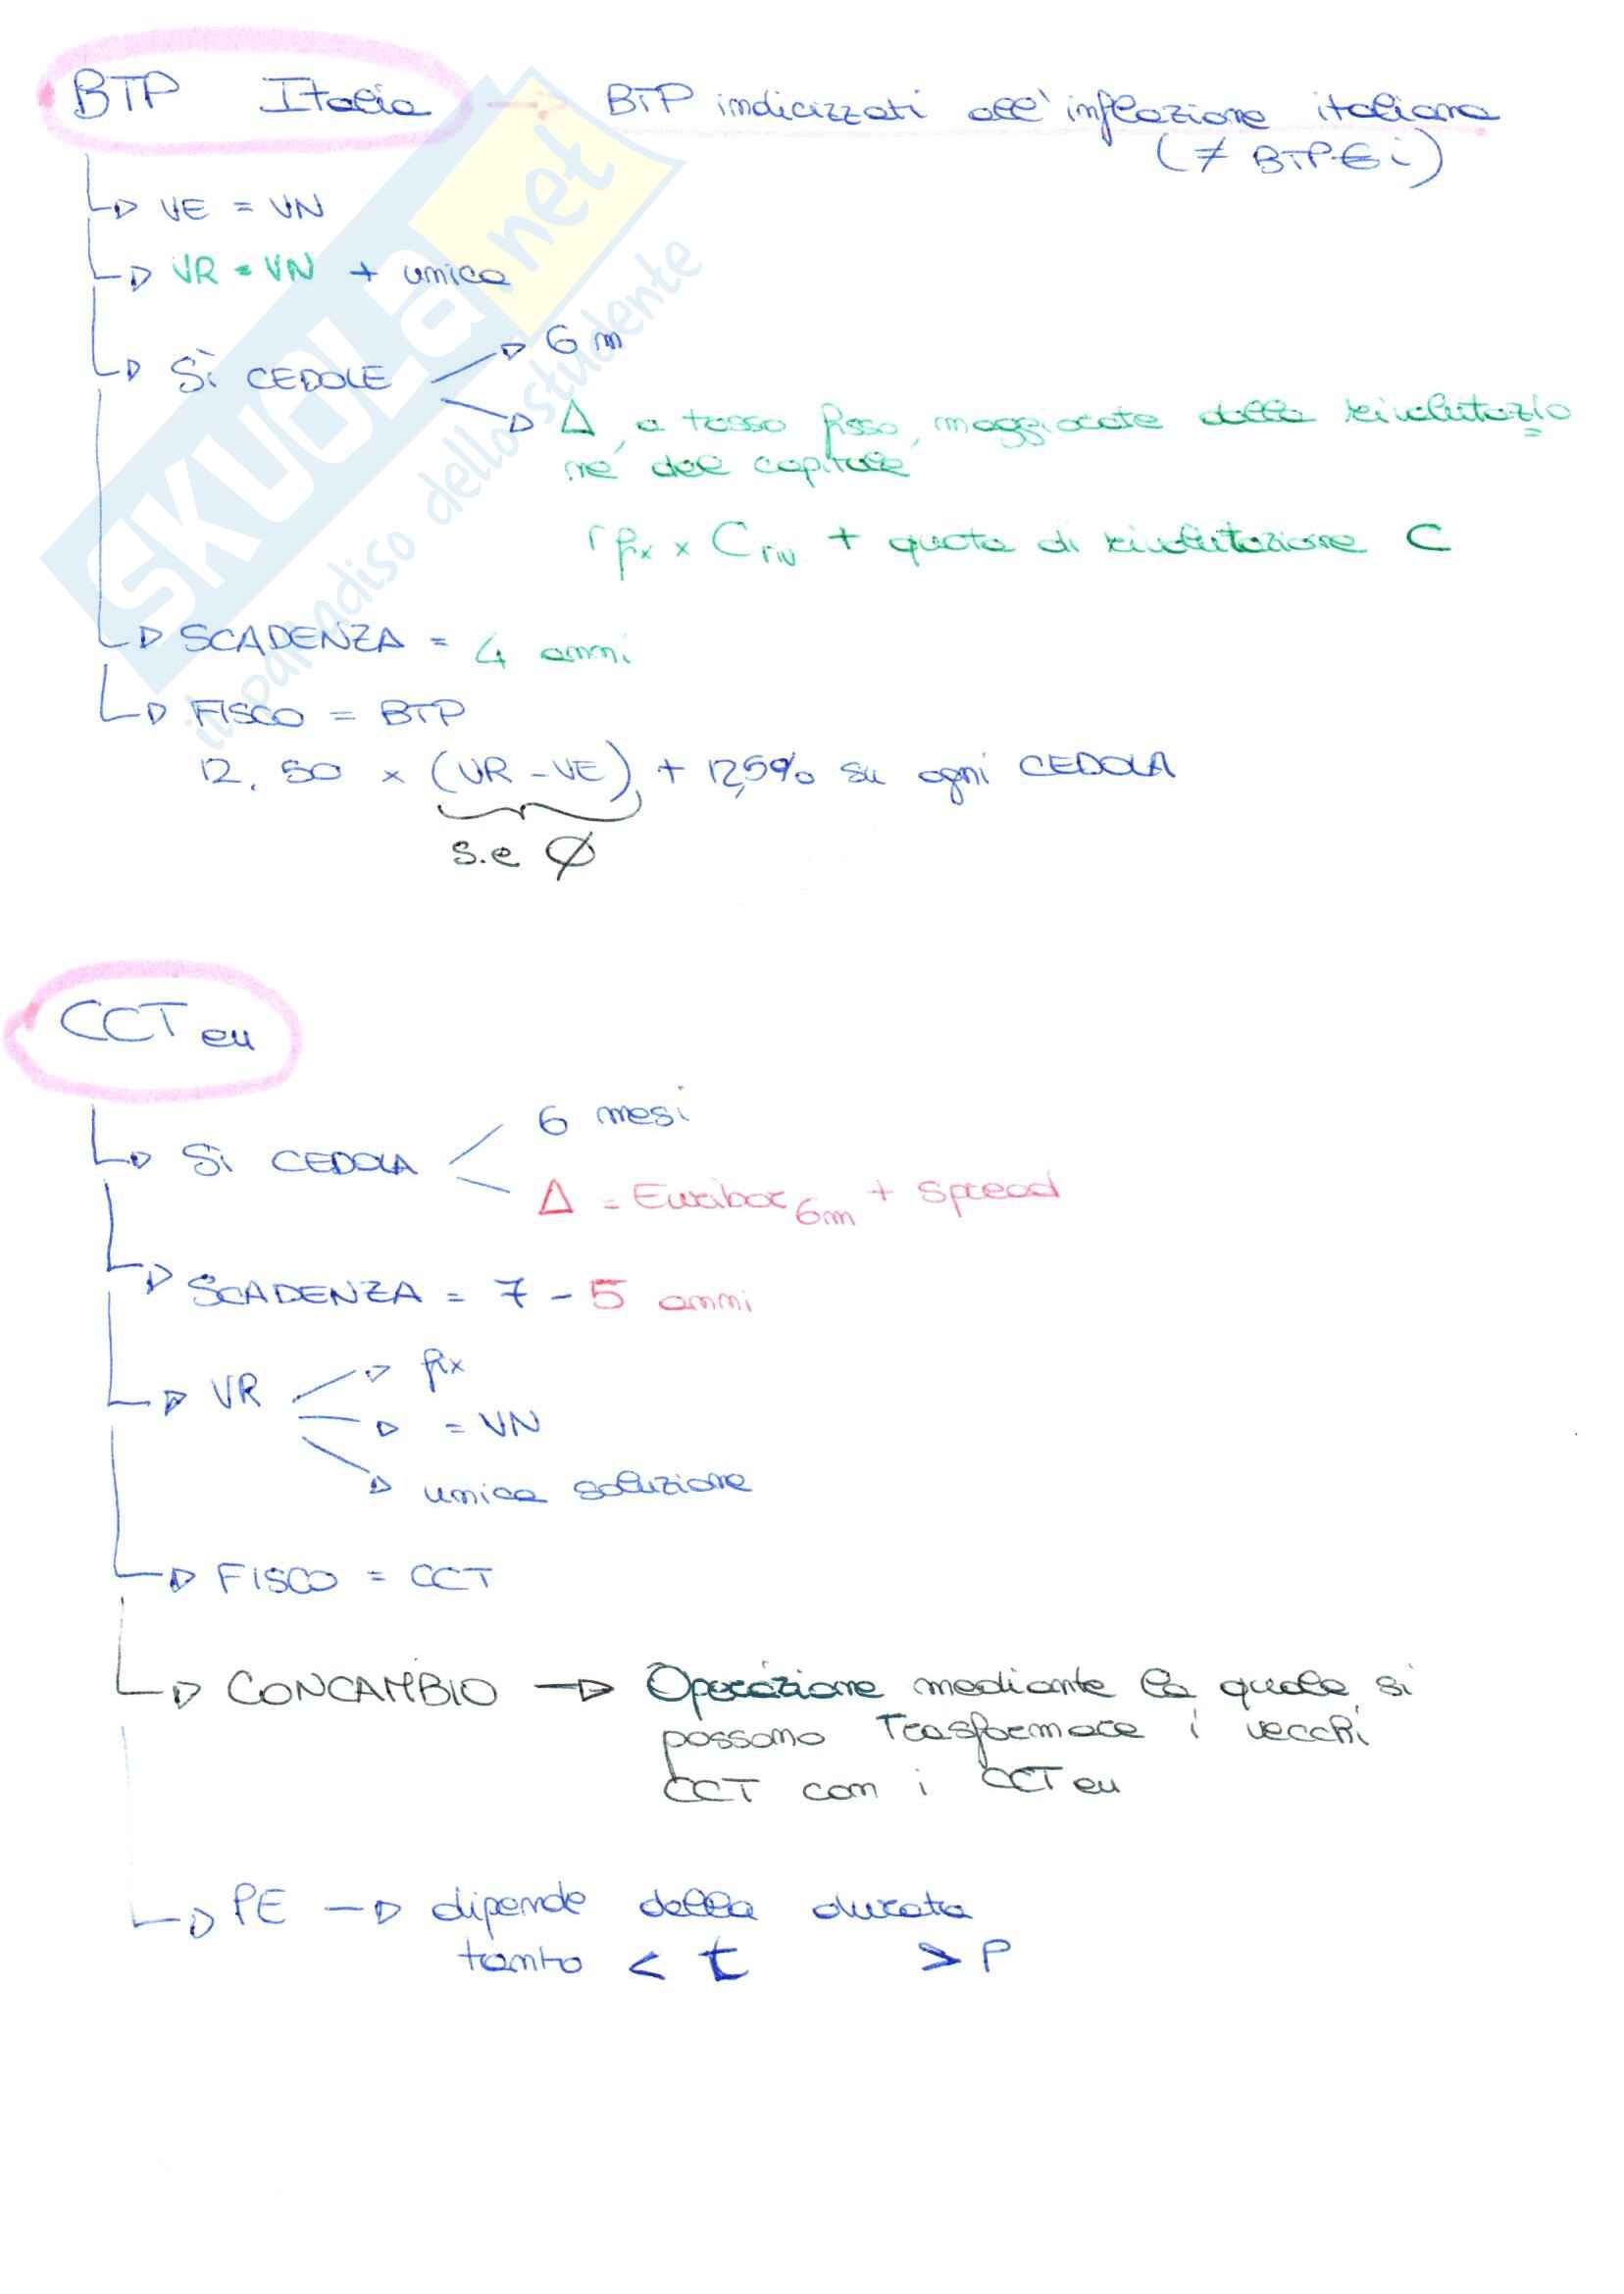 BTP Italia → BTP indicizzati all'inflazione italiana
(≠ BTP€i)
VE = VN
VR = VN + unica
Sì CEDOLE
6 m
Δ, a tasso fisso, maggiorate della rivalutazio
ne del capitale
r fix × C riv + quota di rivalutazione C
SCADENZA = 4 anni
FISCO = BTP
12,50 × (VR - VE) + 12,5% su ogni CEDOLA
s.e Ø
CCT eu
Sì CEDOLA
6 mesi
Δ = Euribor 6m + spread
SCADENZA = 7 - 5 anni
VR
fix
= VN
unica soluzione
FISCO = CCT
CONCAMBIO → Operazione mediante la quale si
possono Trasformare i vecchi
CCT con i CCT eu
PE → dipende dalla durata
tanto < t > P
SKUOLA.net
il paradiso dello studente